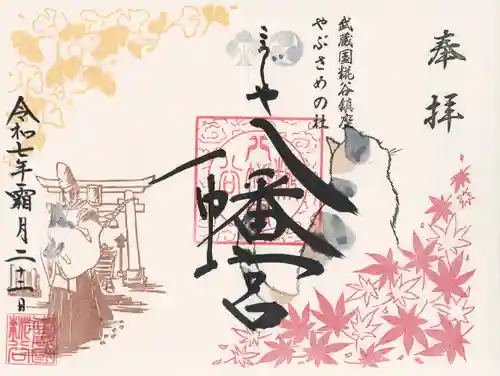 奉拝
武蔵国糀谷鎮座
やぶさめの社
こうじや
八幡宮
令和七年霜月二十三日